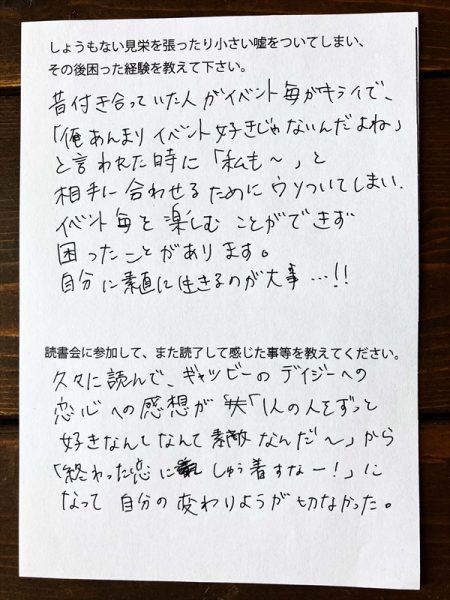 しょうもない見栄を張ったり小さい嘘をついてしまい、
その後困った経験を教えて下さい。
昔付き合っていた人がイベント毎がキライで、
「俺あんまりイベント好きじゃないんだよね」
と言われた時に「私も〜」と
相手に合わせるためにウソついてしまい、
イベント毎を楽しむことができず
困ったことがあります。
自分に素直に生きるのが大事…!!
読書会に参加して、また読了して感じた事等を教えてください。
久々に読んで、ギャツビーのデイジーへの
恋心への感想が「1人の人をずっと
好きなんてなんて素敵なんだ〜」から
「終わった恋にしゅう着すなー!」に
なって自分の変わりようが切なかった。